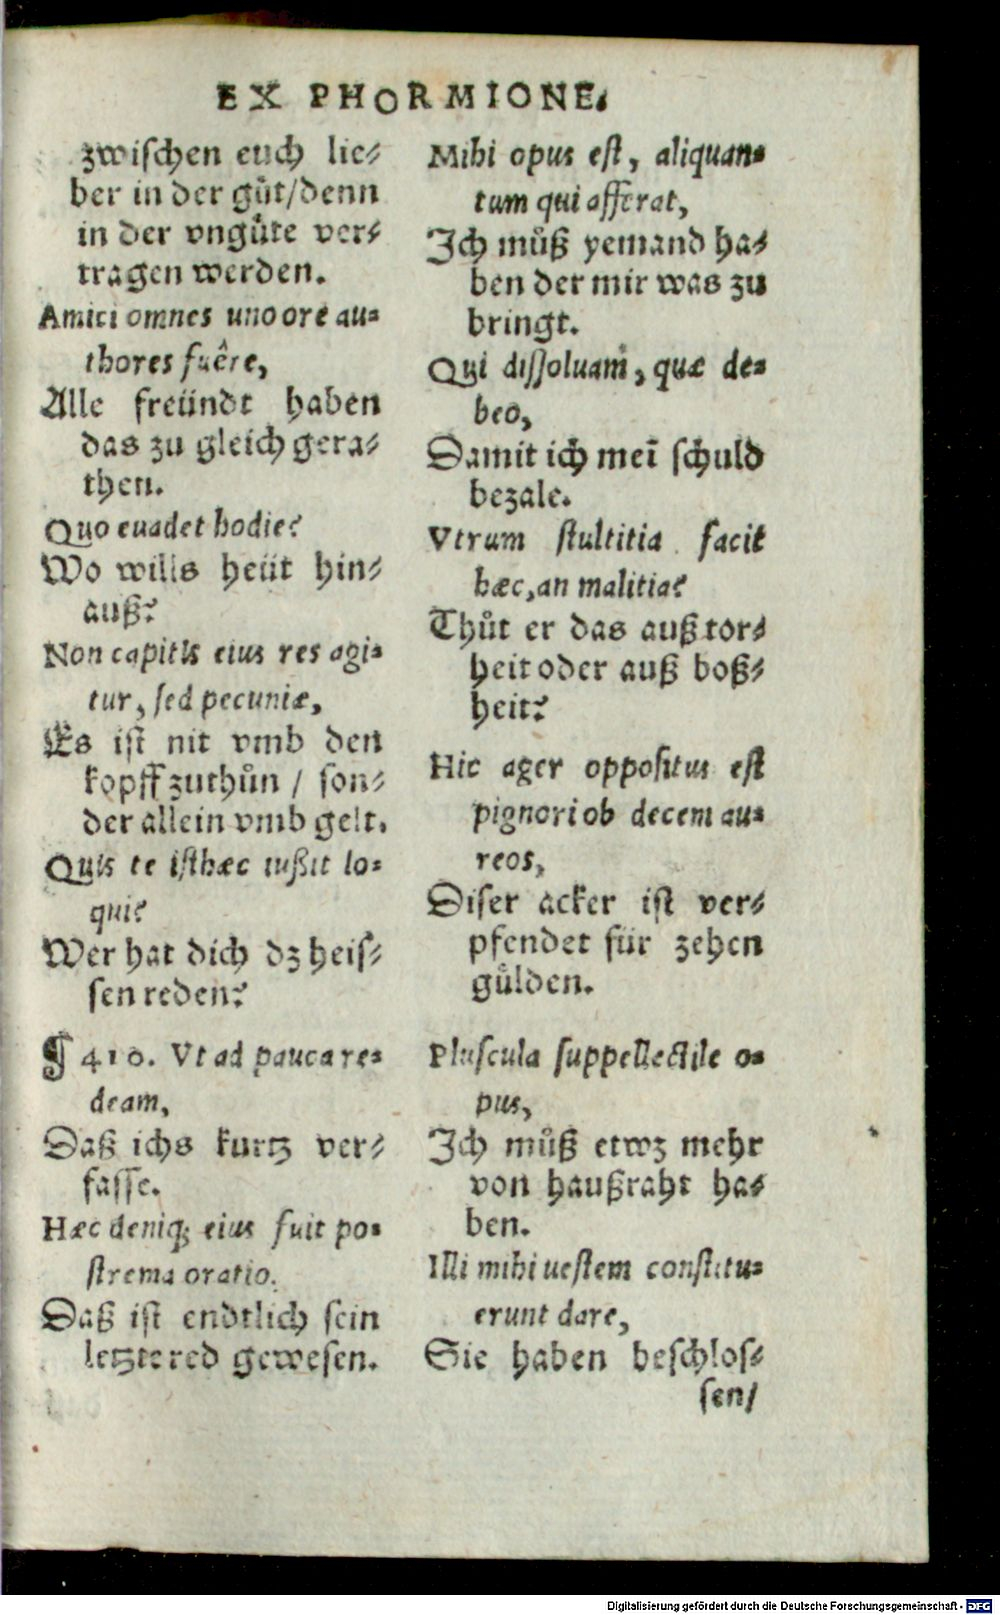 EX PHORMIONE.
zwiſchen euch lie⸗
ber in der guͤt/denn
in der vnguͤte ver⸗
tragen werden.
Amici omnes uno ore au⸗
thores fuêre,
Alle freündt haben
das zu gleich gera⸗
then.
Quo euadet hodie?
Wo wills heüt hin⸗
auß?
Non capitis eius res agi⸗
tur, ſed pecuniæ,
Es iſt nit vmb den
kopff zuthuͦn / ſon⸗
der allein vmb gelt.
Quis te iſthæc iußit lo⸗
qui?
Wer hat dich dz heiſ⸗
ſen reden?
¶ 410. Vt ad pauca re⸗
deam,
Daß ichs kurtz ver⸗
faſſe.
Hæc deniq; eius fuit po⸗
ſtrema oratio.
Daß iſt endtlich ſein
letzte red geweſen.
Mihi opus eſt, aliquan⸗
tum qui afferat,
Ich muͦß yemand ha⸗
ben der mir was zu
bringt.
Qui diſſoluam, quæ de⸗
beo,
Damit ich meī ſchuld
bezale.
Vtrum ſtultitia facit
hæc, an malitia?
Thuͦt er das auß tor⸗
heit oder auß boß⸗
heit?
Hic ager oppoſitus eſt
pignori ob decem au⸗
reos,
Diſer acker iſt ver⸗
pfendet für zehen
guͤlden.
Pluſcula ſuppellectile o⸗
pus,
Ich muͦß etwz mehr
von haußraht ha⸗
ben.
Illi mihi ueſtem conſtitu⸗
erunt dare,
Sie haben beſchloſ⸗
ſen/
Digitalisierung gefördert durch die Deutsche Forschungsgemeinschaft - DFG